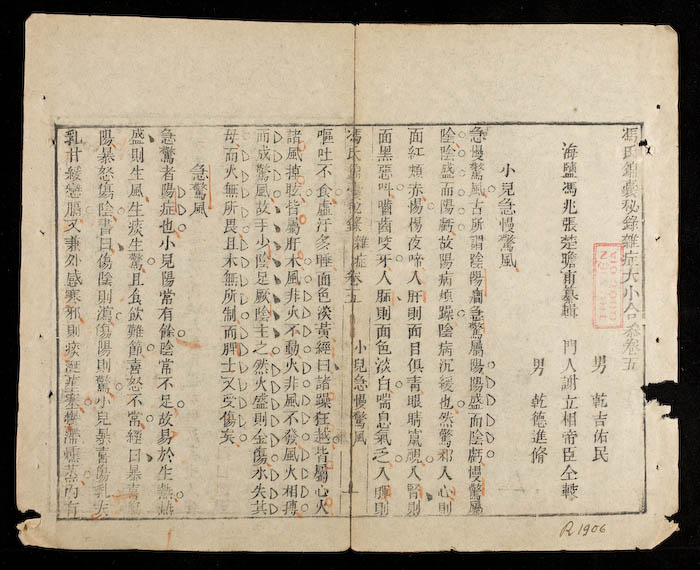 馮氏錦囊秘錄雜症大小合參卷五
男 乾吉佑民
海鹽馮兆張楚瞻甫纂輯 門人謝立相帝臣仝較
男 乾德進修
小兒急慢驚風
急慢驚風古所謂陰陽癎急驚屬陽陽盛而陰虧慢驚屬
陰陰盛而陽虧故陽病煩躁陰病沉緩也然驚邪入心則
面紅頰赤惕惕夜啼入肝則面目俱青眼睛竄視入腎則
面黑惡叫嚙齒咬牙入肺則面色淡白喘息氣乏入脾則
馮氏錦囊秘錄 雜症卷十五 小兒急慢驚風
嘔吐不食虛汗多睡面色淡黃經曰諸躁狂越皆屬心火
諸風掉眩皆屬肝木風非火不動火非風不發風火相搏
而成驚風故手少陰足厥陰主之然火盛則金傷水失其
母而火無所畏且木無所制而脾土又受傷矣
急驚風
急驚者陽症也小兒陽常有餘陰常不足故易於生熱熱
盛則生風生痰生驚且食飲難節喜怒不常經曰暴喜傷
陽暴怒傷陰書曰傷陰則瀉傷陽則驚小兒暴喜傷乳夫
乳甘緩戀膈又兼外感寒邪則痰涎壅塞滯燻蒸內有
THU VIEN
QUOC GIA
R.1906